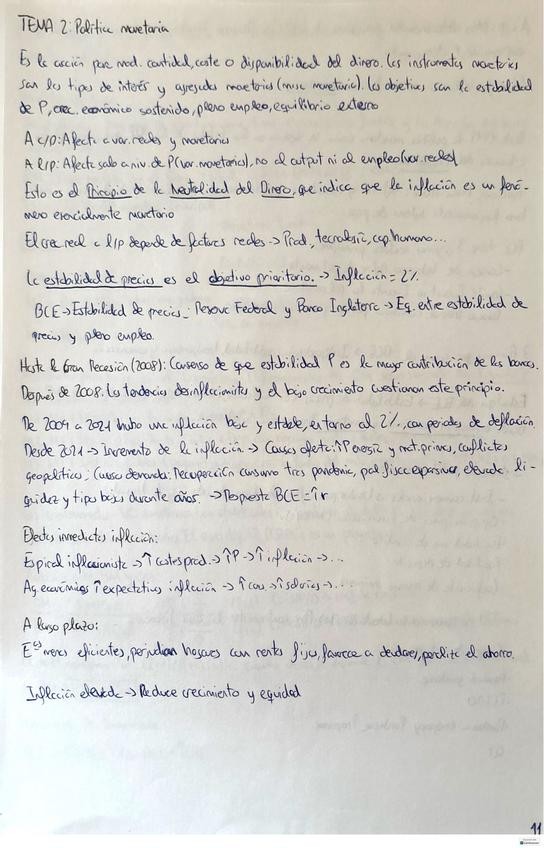 TEMA 2: Política monetaria
Es la acción para mod. cantidad, coste o disponibilidad del dinero. Los instrumentos monetarios
son los tipos de interés y agregados monetarios (masa monetaria). Los objetivos son la estabilidad
de P, crec. económico sostenido, pleno empleo, equilibrio externo
A c/p: Afecta a var. reales y monetarias
A l/p: Afecta solo a niv. de P (var. monetaria), no al output ni al empleo (var. reales)
Esto es el Principio de la Neutralidad del Dinero, que indica que la inflación es un fenó-
meno esencialmente monetario
El crec real a l/p depende de factores reales → Prod, tecnología, cap. humano...
La estabilidad de precios es el objetivo prioritario. → Inflación = 2%
BCE → Estabilidad de precios; Reserva Federal y Banco Inglaterra → Eq. entre estabilidad de
precios y pleno empleo.
Hasta la Gran Recesión (2008): Consenso de que estabilidad P es la mayor contribución de los bancos.
Después de 2008: Las tendencias desinflacionistas y el bajo crecimiento cuestionan este principio.
De 2009 a 2021 hubo una inflación baja y estable, en torno al 2%, con periodos de deflación.
Desde 2021 → Incremento de la inflación → Causas oferta: ↑P energía y mat. primas, conflictos
geopolíticos; Causa demanda: Recuperación consumo tras pandemia, pol fiscal expansiva, elevada li-
quidez y tipos bajos durante años → Respuesta BCE = ↑r
Efectos inmediatos inflación:
Espiral inflacionista → ↑costes prod. → ↑P → ↑ inflación → ...
Ag. económicos ↑ expectativas inflación → ↑ cons → ↑ salarios → ...
A largo plazo:
Eas menos eficientes, perjudican hogares con renta fija, favorece a deudores, penaliza el ahorro.
Inflación elevada → Reduce crecimiento y equidad
11